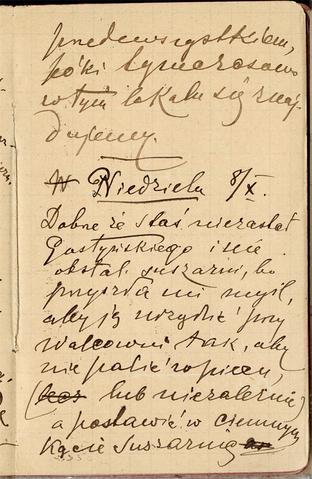 przedewszystkiem,
póki tymczasowo
w tym lokalu się znaj-
dujemy.
W Niedziela 8/X.
Dobrze że Staś nie zastał
Gostyńskiego i nie
obstal. suszarni, bo
przyszła mi myśl,
aby ją urządzić przy
walcowni tak, aby
nie palić ropicem,
(bez lub niezależnie)
a postawić w ciemnym
kącie suszarnię